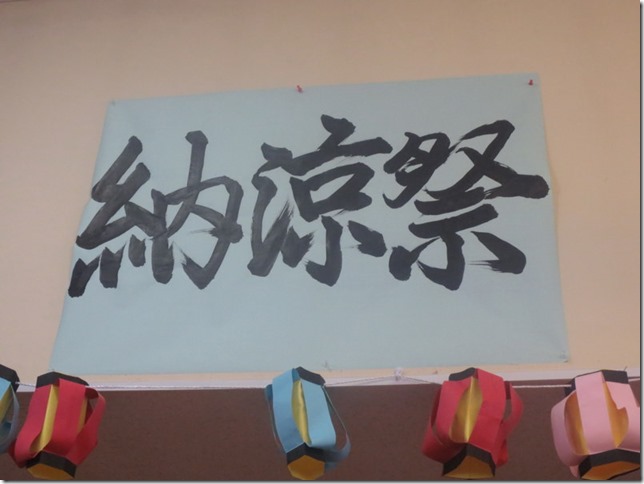 納涼祭